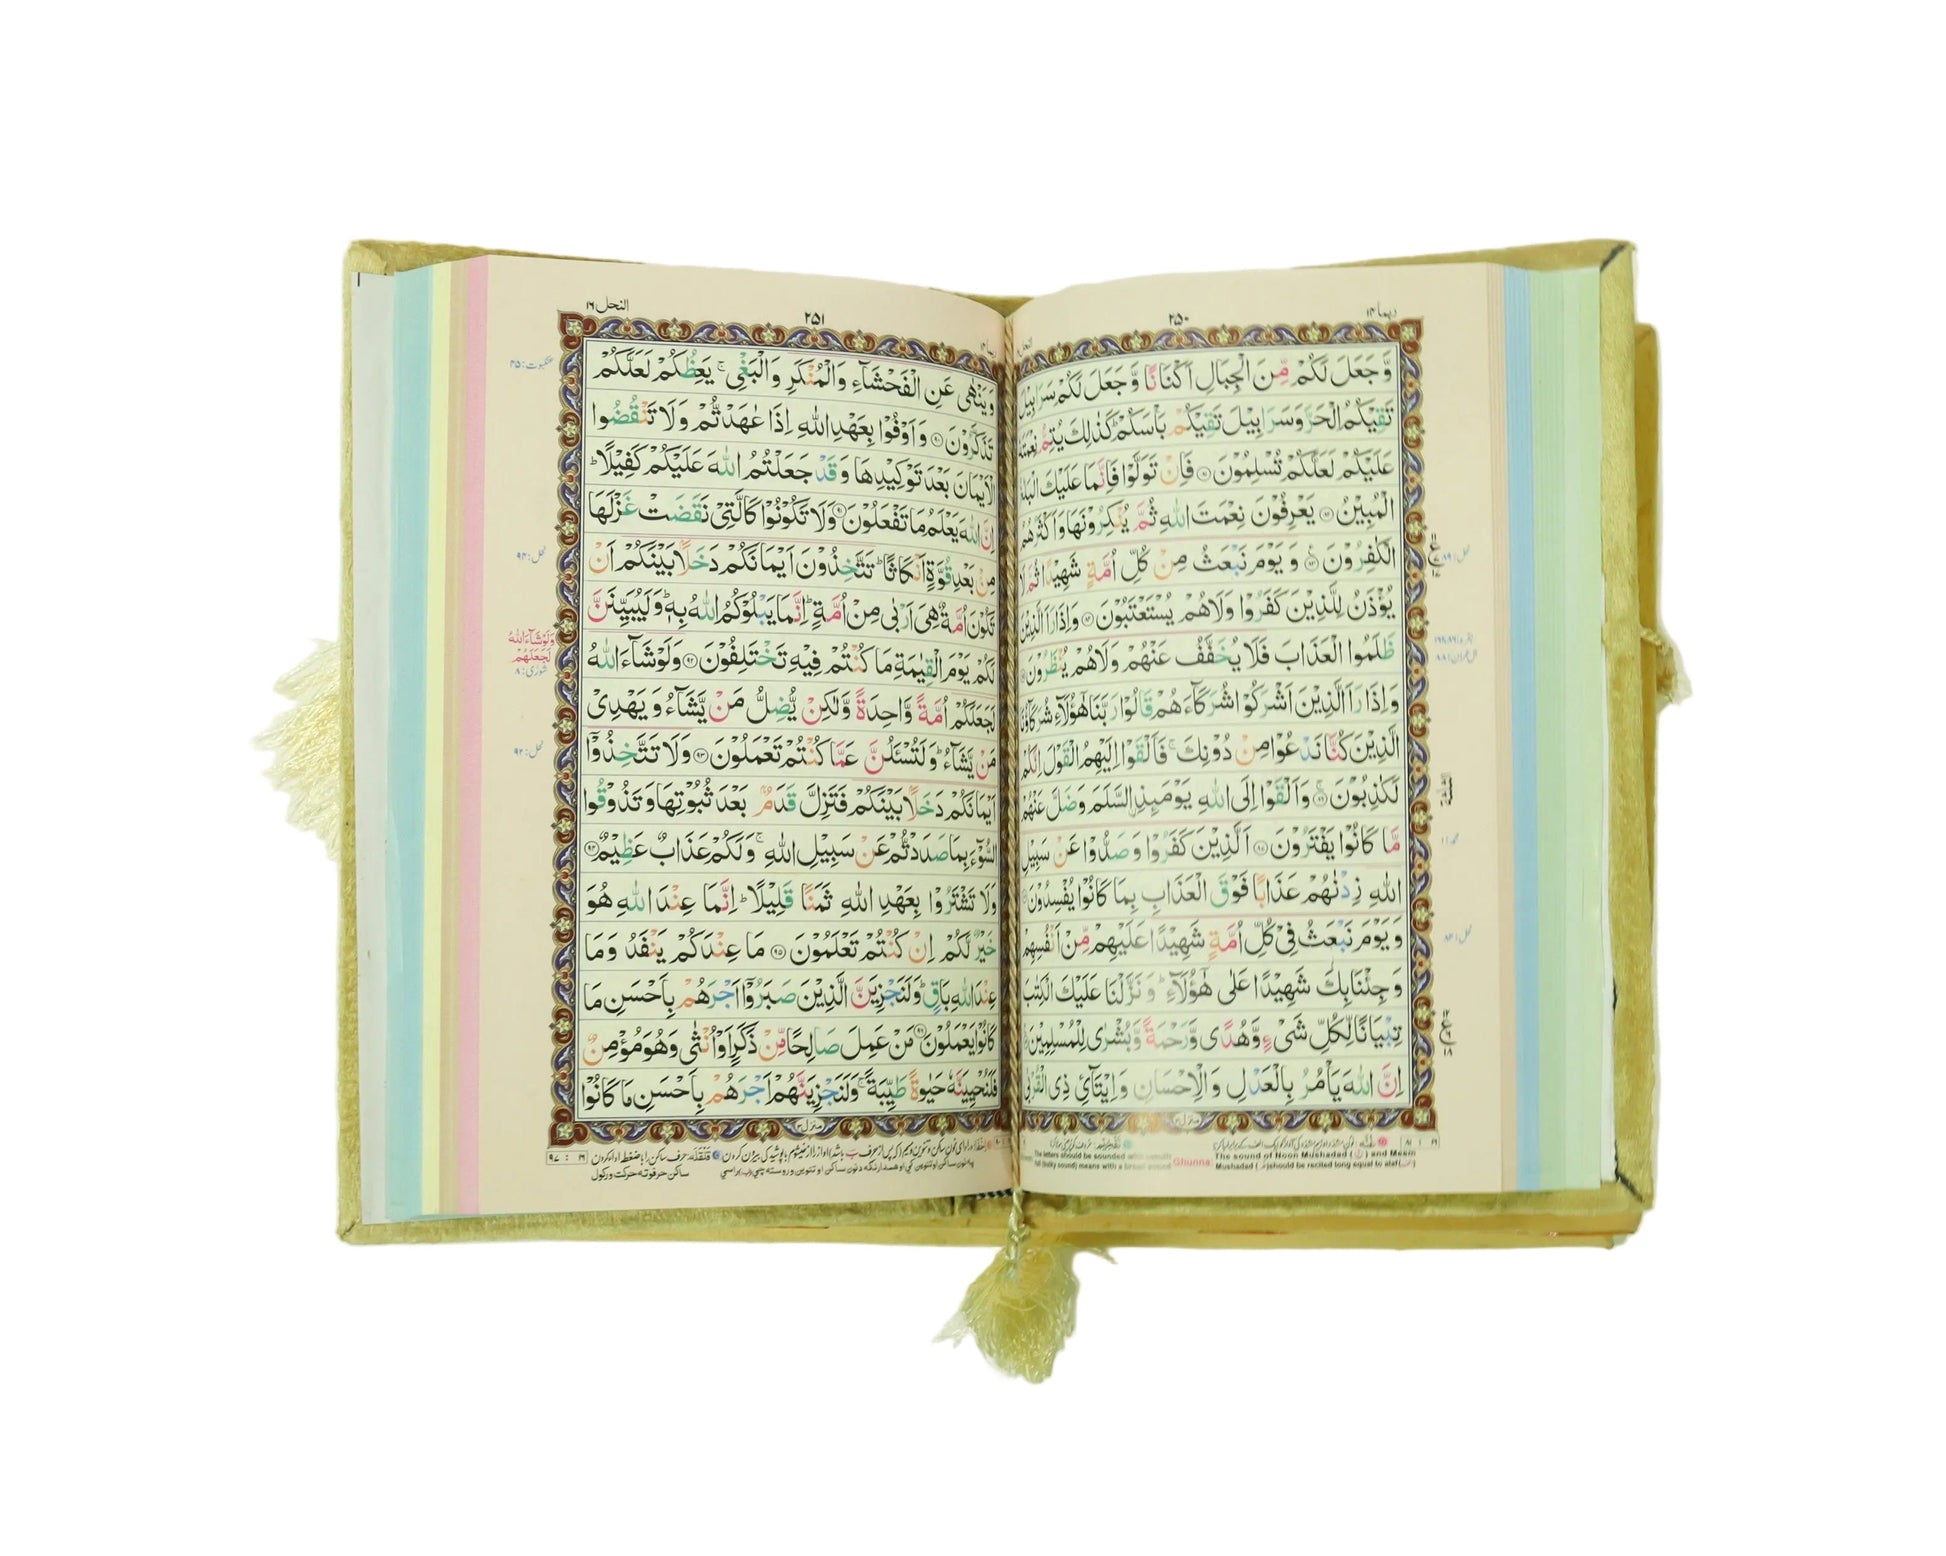 ربما ١٤
٢٥٠
وَّ جَعَلَ لَكُمْ مِّنَ الْجِبَالِ اَكْنَانًا وَّ جَعَلَ لَكُمْ سَرَابِيْلَ
تَقِيْكُمُ الْحَرَّ وَ سَرَابِيْلَ تَقِيْكُمْ بَاْسَكُمْ ؕ كَذٰلِكَ يُتِمُّ نِعْمَتَهٗ
عَلَيْكُمْ لَعَلَّكُمْ تُسْلِمُوْنَ ۝۸۱ فَاِنْ تَوَلَّوْا فَاِنَّمَا عَلَيْكَ الْبَلٰغُ
الْمُبِيْنُ ۝۸۲ يَعْرِفُوْنَ نِعْمَتَ اللّٰهِ ثُمَّ يُنْكِرُوْنَهَا وَ اَكْثَرُهُمُ
الْكٰفِرُوْنَ ۝۸۳ وَ يَوْمَ نَبْعَثُ مِنْ كُلِّ اُمَّةٍ شَهِيْدًا ثُمَّ لَا
يُؤْذَنُ لِلَّذِيْنَ كَفَرُوْا وَلَا هُمْ يُسْتَعْتَبُوْنَ ۝۸۴ وَ اِذَا رَاَ الَّذِيْنَ
ظَلَمُوا الْعَذَابَ فَلَا يُخَفَّفُ عَنْهُمْ وَلَا هُمْ يُنْظَرُوْنَ
وَ اِذَا رَاَ الَّذِيْنَ اَشْرَكُوْا شُرَكَآءَهُمْ قَالُوْا رَبَّنَا هٰٓؤُلَآءِ شُرَكَآؤُنَا
الَّذِيْنَ كُنَّا نَدْعُوْا مِنْ دُوْنِكَ ۚ فَاَلْقَوْا اِلَيْهِمُ الْقَوْلَ اِنَّكُمْ
لَكٰذِبُوْنَ ۝۸۶ وَ اَلْقَوْا اِلَى اللّٰهِ يَوْمَىِٕذِ اِ۟لسَّلَمَ وَ ضَلَّ عَنْهُمْ
مَّا كَانُوْا يَفْتَرُوْنَ ۝۸۷ اَلَّذِيْنَ كَفَرُوْا وَ صَدُّوْا عَنْ سَبِيْلِ
اللّٰهِ زِدْنٰهُمْ عَذَابًا فَوْقَ الْعَذَابِ بِمَا كَانُوْا يُفْسِدُوْنَ
وَ يَوْمَ نَبْعَثُ فِيْ كُلِّ اُمَّةٍ شَهِيْدًا عَلَيْهِمْ مِّنْ اَنْفُسِهِمْ
وَ جِئْنَا بِكَ شَهِيْدًا عَلٰى هٰٓؤُلَآءِ ؕ وَ نَزَّلْنَا عَلَيْكَ الْكِتٰبَ
تِبْيَانًا لِّكُلِّ شَيْءٍ وَّ هُدًى وَّ رَحْمَةً وَّ بُشْرٰى لِلْمُسْلِمِيْنَ
اِنَّ اللّٰهَ يَاْمُرُ بِالْعَدْلِ وَ الْاِحْسَانِ وَ اِيْتَآئِ ذِي الْقُرْبٰى
منزل٣
Ghunna: The sound of Noon Mushadad and Meem
Mushadad should be recited long equal to alaf
The letters should be sounded with
full (bulky sound) means with a broad sound
النحل ١٦
٢٥١
وَ يَنْهٰى عَنِ الْفَحْشَآءِ وَ الْمُنْكَرِ وَ الْبَغْيِ ۚ يَعِظُكُمْ لَعَلَّكُمْ
تَذَكَّرُوْنَ ۝۹۰ وَ اَوْفُوْا بِعَهْدِ اللّٰهِ اِذَا عٰهَدْتُّمْ وَلَا تَنْقُضُوا
الْاَيْمَانَ بَعْدَ تَوْكِيْدِهَا وَ قَدْ جَعَلْتُمُ اللّٰهَ عَلَيْكُمْ كَفِيْلًا ؕ
اِنَّ اللّٰهَ يَعْلَمُ مَا تَفْعَلُوْنَ ۝۹۱ وَلَا تَكُوْنُوْا كَالَّتِيْ نَقَضَتْ غَزْلَهَا
مِنْ بَعْدِ قُوَّةٍ اَنْكَاثًا ؕ تَتَّخِذُوْنَ اَيْمَانَكُمْ دَخَلًا بَيْنَكُمْ اَنْ
تَكُوْنَ اُمَّةٌ هِيَ اَرْبٰى مِنْ اُمَّةٍ ؕ اِنَّمَا يَبْلُوْكُمُ اللّٰهُ بِهٖ ؕ وَ لَيُبَيِّنَنَّ
لَكُمْ يَوْمَ الْقِيٰمَةِ مَا كُنْتُمْ فِيْهِ تَخْتَلِفُوْنَ ۝۹۲ وَ لَوْ شَآءَ اللّٰهُ
لَجَعَلَكُمْ اُمَّةً وَّاحِدَةً وَّلٰكِنْ يُّضِلُّ مَنْ يَّشَآءُ وَ يَهْدِيْ
مَنْ يَّشَآءُ ؕ وَ لَتُسْـَٔلُنَّ عَمَّا كُنْتُمْ تَعْمَلُوْنَ ۝۹۳ وَلَا تَتَّخِذُوْۤا
اَيْمَانَكُمْ دَخَلًا بَيْنَكُمْ فَتَزِلَّ قَدَمٌ بَعْدَ ثُبُوْتِهَا وَ تَذُوْقُوا
السُّوْٓءَ بِمَا صَدَدْتُّمْ عَنْ سَبِيْلِ اللّٰهِ ۚ وَ لَكُمْ عَذَابٌ عَظِيْمٌ ۝۹۴
وَلَا تَشْتَرُوْا بِعَهْدِ اللّٰهِ ثَمَنًا قَلِيْلًا ؕ اِنَّمَا عِنْدَ اللّٰهِ هُوَ
خَيْرٌ لَّكُمْ اِنْ كُنْتُمْ تَعْلَمُوْنَ ۝۹۵ مَا عِنْدَكُمْ يَنْفَدُ وَمَا
عِنْدَ اللّٰهِ بَاقٍ ؕ وَ لَنَجْزِيَنَّ الَّذِيْنَ صَبَرُوْۤا اَجْرَهُمْ بِاَحْسَنِ مَا
كَانُوْا يَعْمَلُوْنَ ۝۹۶ مَنْ عَمِلَ صَالِحًا مِّنْ ذَكَرٍ اَوْ اُنْثٰى وَ هُوَ مُؤْمِنٌ
فَلَنُحْيِيَنَّهٗ حَيٰوةً طَيِّبَةً ۚ وَ لَنَجْزِيَنَّهُمْ اَجْرَهُمْ بِاَحْسَنِ مَا كَانُوْا
منزل٣